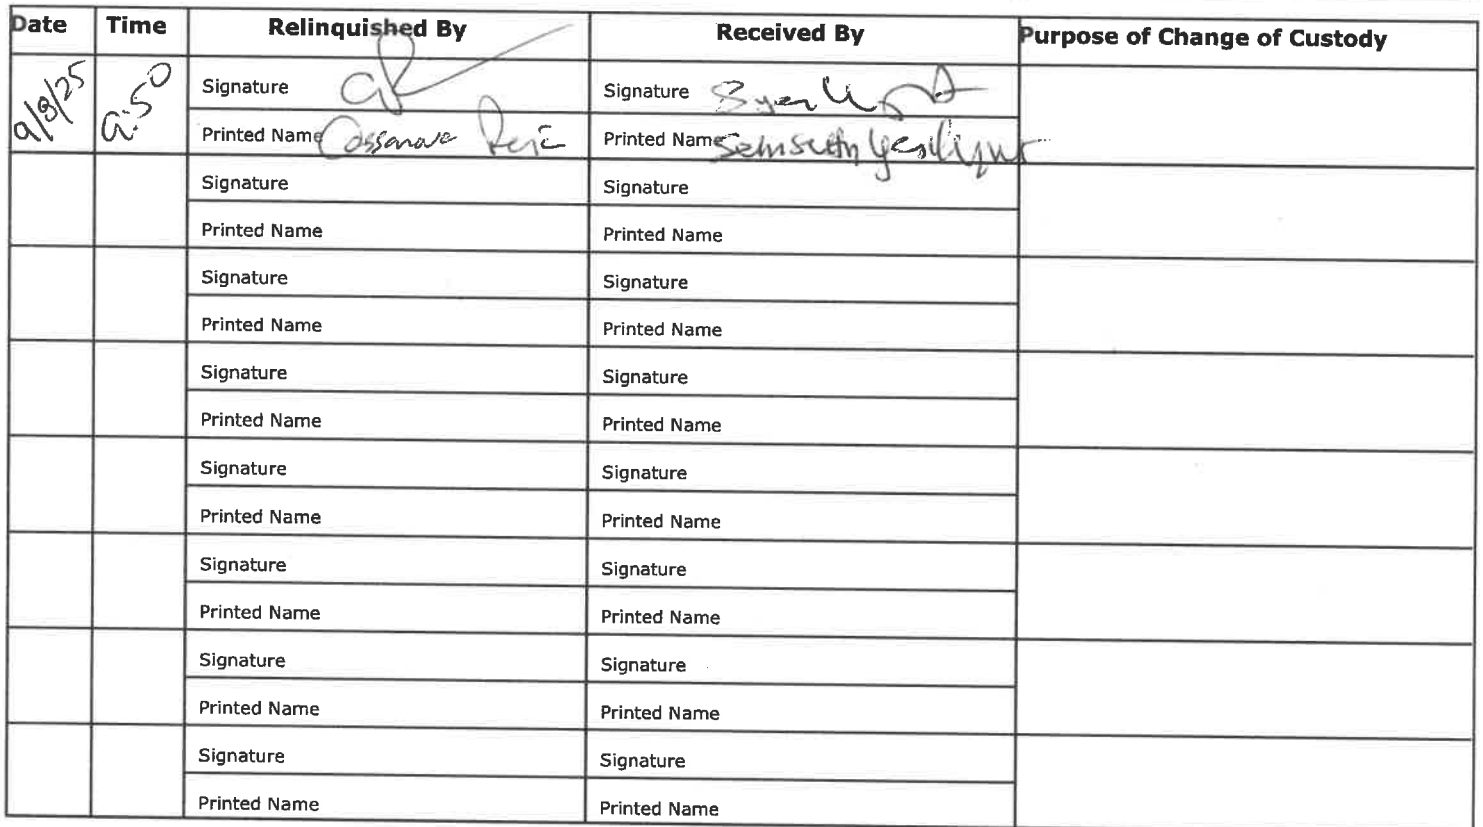 Date Time Relinquished By Received By Purpose of Change of Custody
9/8/25 9:50 Signature Signature
Printed Name Printed Name
Signature Signature
Printed Name Printed Name
Signature Signature
Printed Name Printed Name
Signature Signature
Printed Name Printed Name
Signature Signature
Printed Name Printed Name
Signature Signature
Printed Name Printed Name
Signature Signature
Printed Name Printed Name
Signature Signature
Printed Name Printed Name